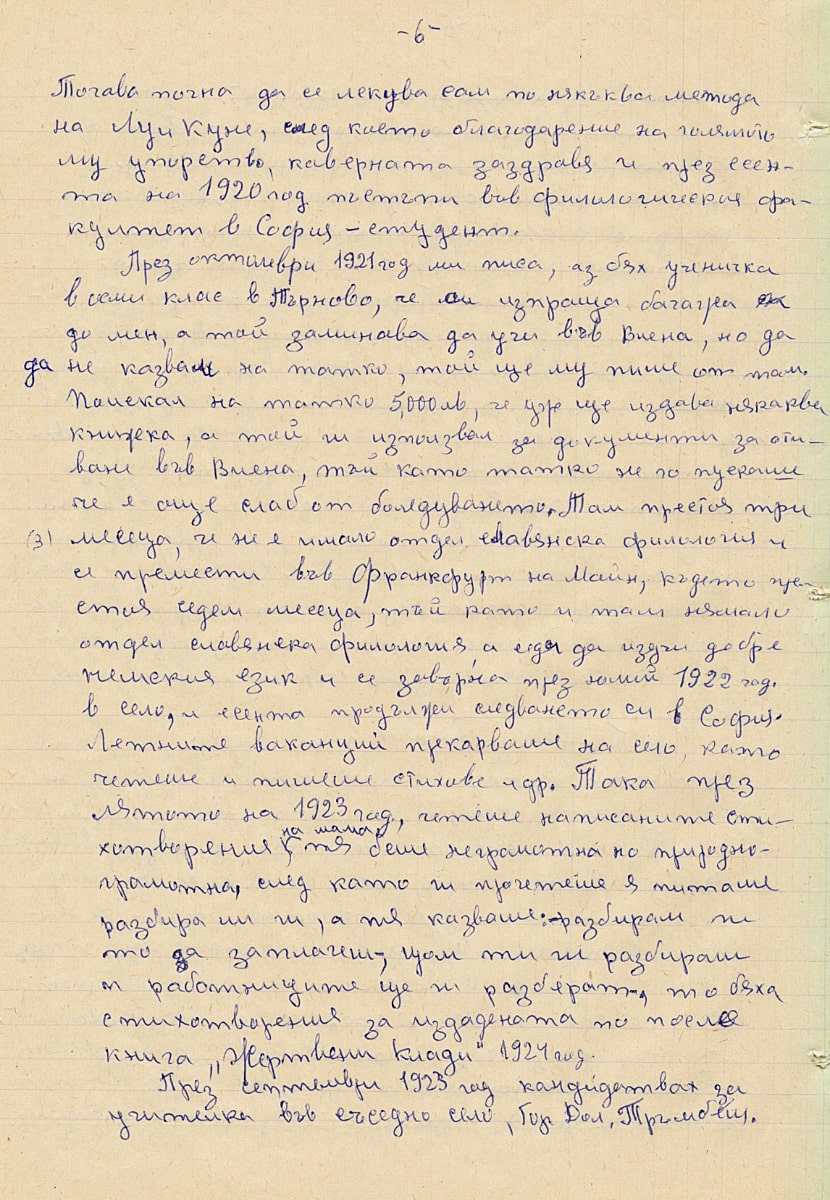 -6-
Тогава почна да се лекува сам по някъква метода
на Луи Куне, след което благодарение на голямото
му упорство, каверната заздравя и през есен-
та на 1920 год. постъпи във филологическия фа-
култет в София – студент.
През октомври 1921 год ми писа, аз бях ученичка
в осми клас в Търново, че си изпраща багажа
до мен, а той заминава да учи във Виена, но да
да не казвам на татко, той ще му пише от там.
Поискал на татко 5,000 лв, че уж ще издава някаква
книжка, а той ги използвал за документи за оти-
ване във Виена, тъй като татко не го пускаше
че е още слаб от боледуването. Там престоя три
(3) месеца, че не е имало отдел славянска филология и
се премести във Франкфурт на Майн, където пре-
стоя седем месеца, тъй като и там нямало
отдел славянска филология а да изучи добре
немския език и се заворна през юлий 1922 год.
в село, и есента продължи следването си в София.
Летните ваканций прекарваше на село, като
четеше и пишеше стихове и др. Така през
лятото на 1923 год, четеше написаните сти-
на мама,
хотворения тя беше неграмотна но природно-
грамотна, след като ги прочетеше я питаше
разбира ли ги, а тя казваше: – разбирам ги
то да заплачеш –, щом ти ги разбираш
и работниците ще ги разберат –, то бяха
стихотворения за издадената по после
книга „Жертвени Клади" 1924 год.
През септември 1923 год кандидатвах за
учителка във съседно село, Гор. Дол. Тръмбеш.